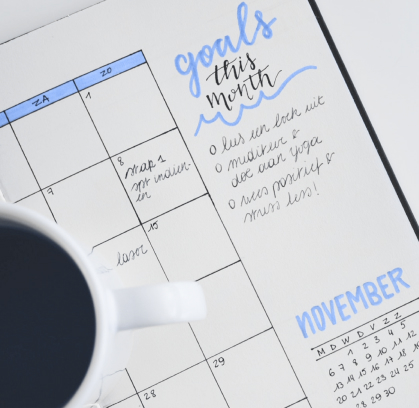 goals
this
month
o lees een boek uit
o mediteer &
doe aan yoga
o wees positief &
stress less!
ZA ZO
1
8
stap 1
indien-
en
15
laser
29
28
NOVEMBER
M D W D V Z Z
1 2 3 4 5
6 7 8 9 10 11 12
13 14 15 16 17 18
20 21 22 23 24 25
28 29 30